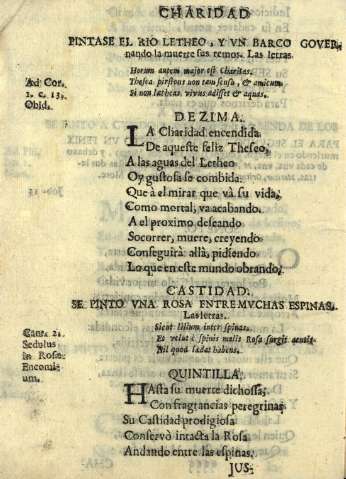 CHARIDAD
PINTASE EL RIO LETHEO, Y VN BARCO GOVER-
nando la muerte sus remos. Las letras.
Horum autem major est Charitas.
Ad Cor.
1. c. 13.
Obid.
Thesea pirithous non tam sensis, & amicum
Si non letheas vivus adisset & aquas.
DEZIMA.
LA Charidad encendida
De aqueste feliz Theseo,
A las aguas del Letheo
Oy gustosa se combida:
Que à el mirar que và su vida,
Como mortal, va acabando.
A el proximo deseando
Socorrer, muere, creyendo
Conseguirà allà, pidiendo
Lo que en este mundo obrando.
CASTIDAD.
SE PINTO VNA ROSA ENTRE MVCHAS ESPINAS.
Las letras.
Cant. 2.
Sedulus
in Rosa.
Encomi
um.
Sicut lilium inter spinas.
Et velut è spinis malis Rosa surgit
Nil quod ladat habens.
QUINTILLA.
HAsta su muerte dichossa,
Con fragrancias peregrinas
Su Castidad prodigiosa
Conservò intacta la Rosa
Andando entre las espinas.
JUS-